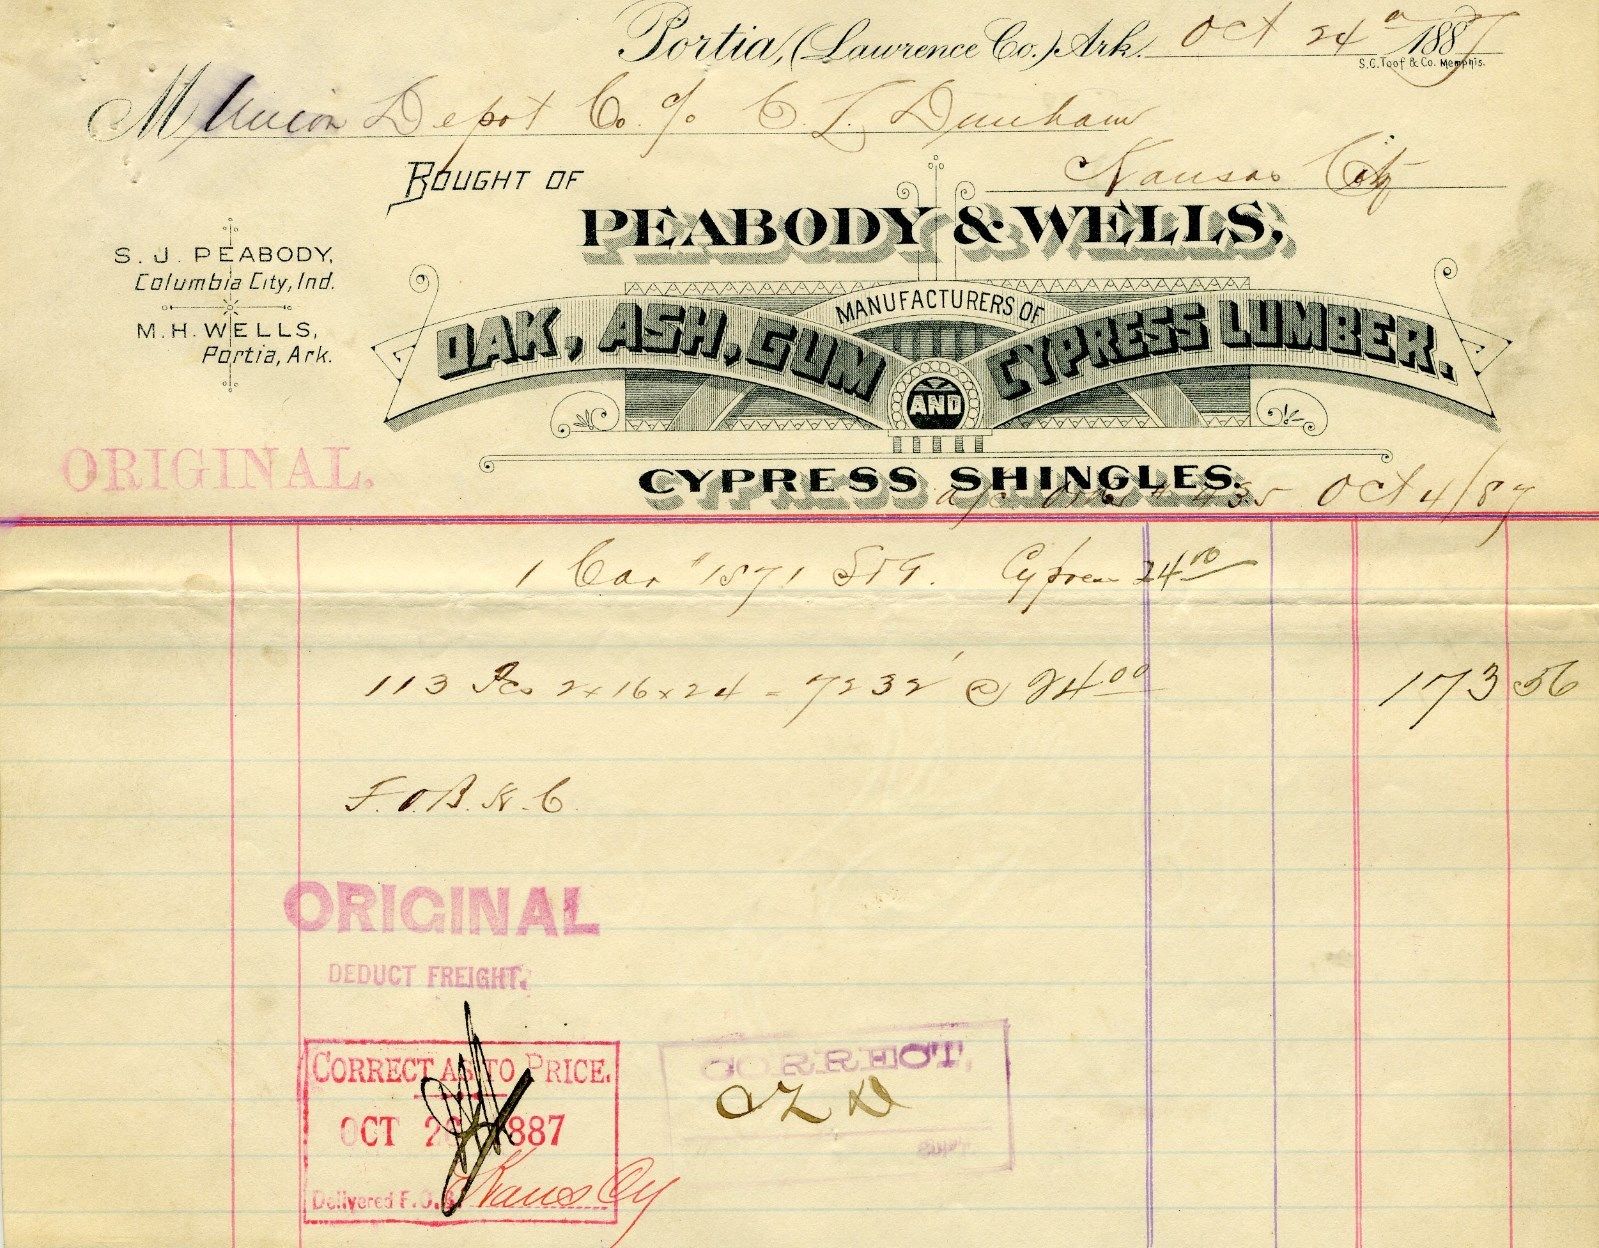 Portia, (Lawrence Co.) Ark. Oct 24th 1887
S.C. Toof & Co. Memphis.
M Union Depot Co. c/o C L Dunham
Kansas City
BOUGHT OF
PEABODY & WELLS,
S. J. PEABODY,
Columbia City, Ind.
M. H. WELLS,
Portia, Ark.
MANUFACTURERS OF
OAK, ASH, GUM AND CYPRESS LUMBER.
CYPRESS SHINGLES.
ORIGINAL.
Oct 4/87
1 Car # 1871 St G. Cypress 24 00
113 Pcs 2x16x24 = 7232' @ 24 00 173 56
F.O.B. K.C.
ORIGINAL
DEDUCT FREIGHT.
CORRECT AS TO PRICE.
OCT 1887
Delivered F.O.B. Kans Cy
CORRECT,
C L D